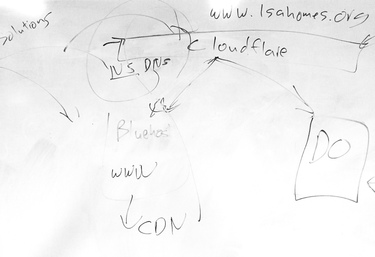 www.lsahomes.org
solutions
Cloudflare
NS. DNS
Bluehost
DO
www
CDN